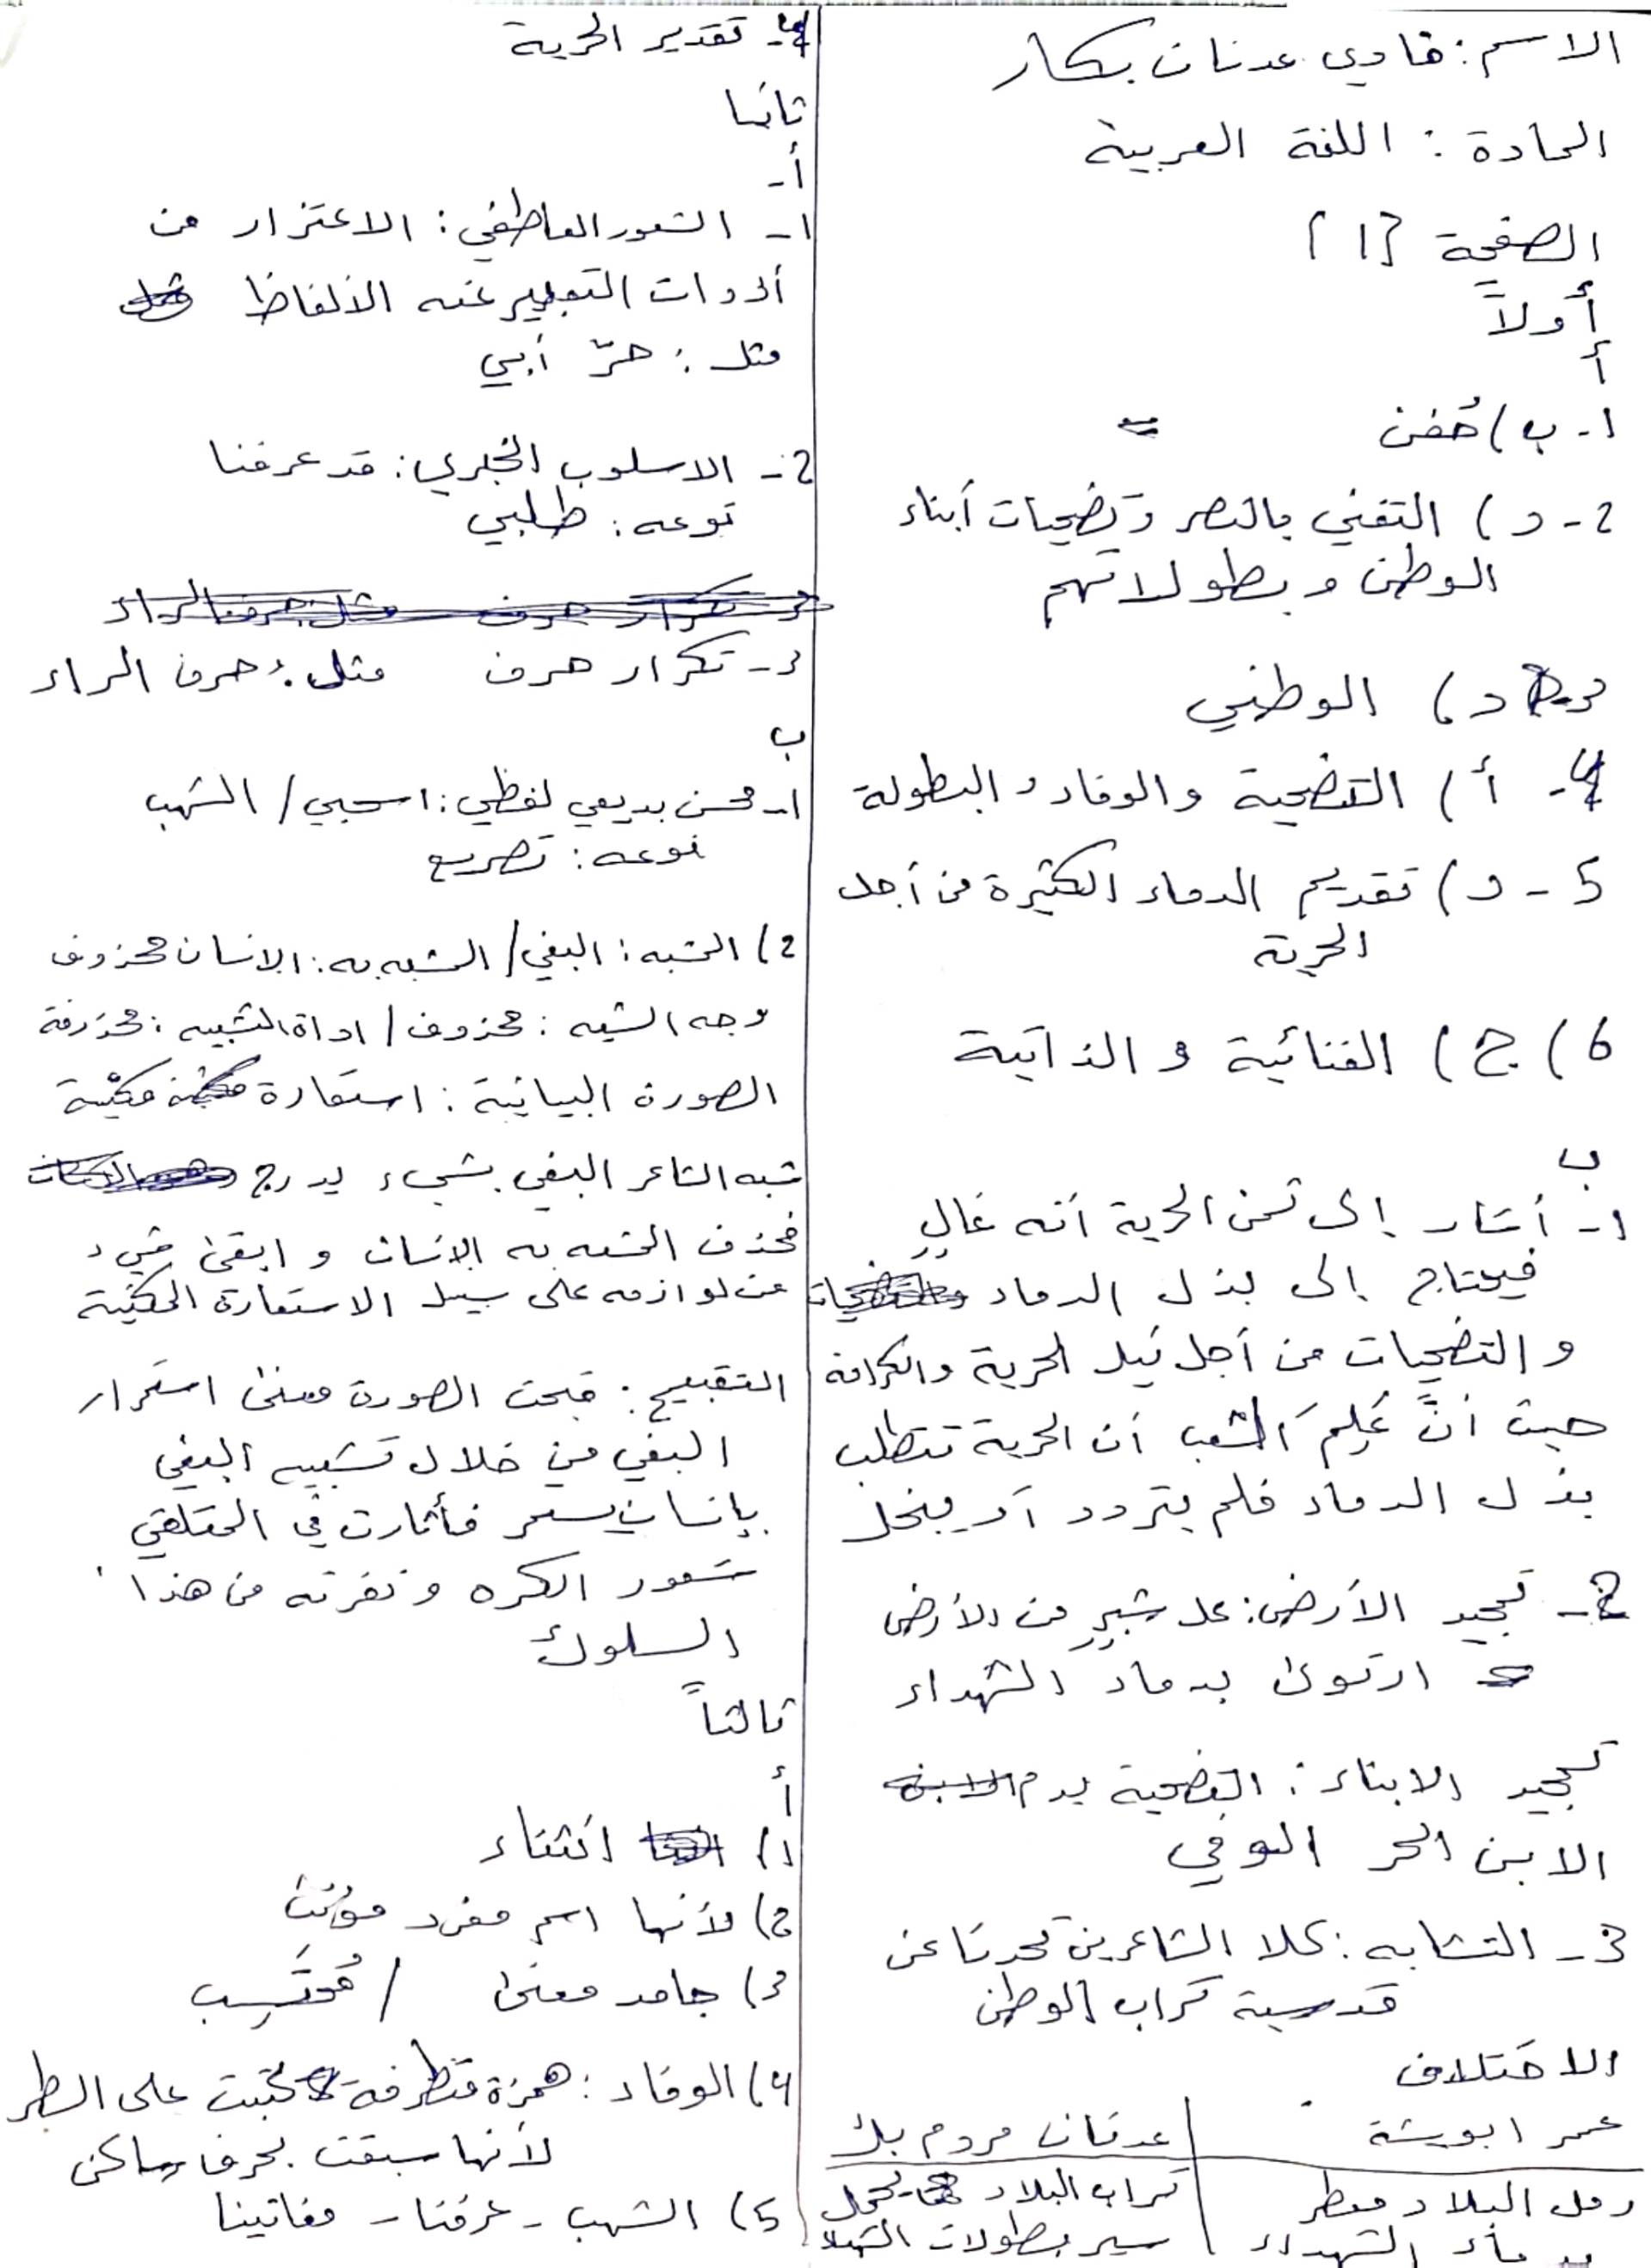 الاسم: هادي عدنان بكار
المادة: اللغة العربية
الصفحة [1]
أولاً
أ
1- ب) حُفن
2- د) التغني بالنصر وتضحيات أبناء
الوطن وبطولاتهم
3- د) الوطني
4- أ) التضحية والوفاء والبطولة
5- د) تقديم الدماء الكثيرة من أجل
الحرية
6) ج) الغنائية والذاتية
ب
1- أشار إلى ثمن الحرية أنه غالٍ
فيحتاج إلى بذل الدماء
والتضحيات من أجل نيل الحرية والكرامة
حيث أنَّ عَلِمَ الشعب أن الحرية تتطلب
بذل الدماء فلم يتردد أو يبخل
2- تمجيد الأرض: كل شبرٍ من الأرض
ارتوى بدماء الشهداء
تمجيد الابناء: التضحية بدم
الابن الحر الوفي
3- التشابه: كلا الشاعرين تحدثا عن
قدسية تراب الوطن
الاختلاف
عمر ابوريشة | عدنان مردم بك
رمل البلاد معطر | تراب البلاد يحمل
بدماء الشهداء | سير بطولات الشهداء
4- تقدير الحرية
ثانيا
أ-
1- الشعور العاطفي: الاعتزاز من
أدوات التعبير عنه الالفاظ
مثل: حرّ أبي
2- الاسلوب الخبري: قد عرفنا
نوعه: طلبي
3- تكرار حرف مثل: حرف الراء
ب
1- محسن بديعي لفظي: اسحبي / الشهب
نوعه: تصريع
2) المشبه: البغي / المشبه به: الانسان محذوف
وجه الشبه: محذوف / اداة التشبيه: محذوفة
الصورة البيانية: استعارة مكنية
شبه الشاعر البغي بشيء يدرج
فحذف المشبه به الانسان و ابقى شيء
من لوازمه على سبيل الاستعارة المكنية
التقبيح: قبحت الصورة معنى استمرار
البغي من خلال تشبيه البغي
بإنسان يستمر فأثارت في المتلقي
شعور الكره ونفرته من هذا
السلوك
ثالثاً
أ
1) انثناء
2) لأنها اسم مفرد مؤنث
3) جامد معنى / مُوتَسِب
4) الوفاء: همزة متطرفة كتبت على السطر
لأنها سبقت بحرف ساكن
5) الشهب - عرفنا - مغانينا